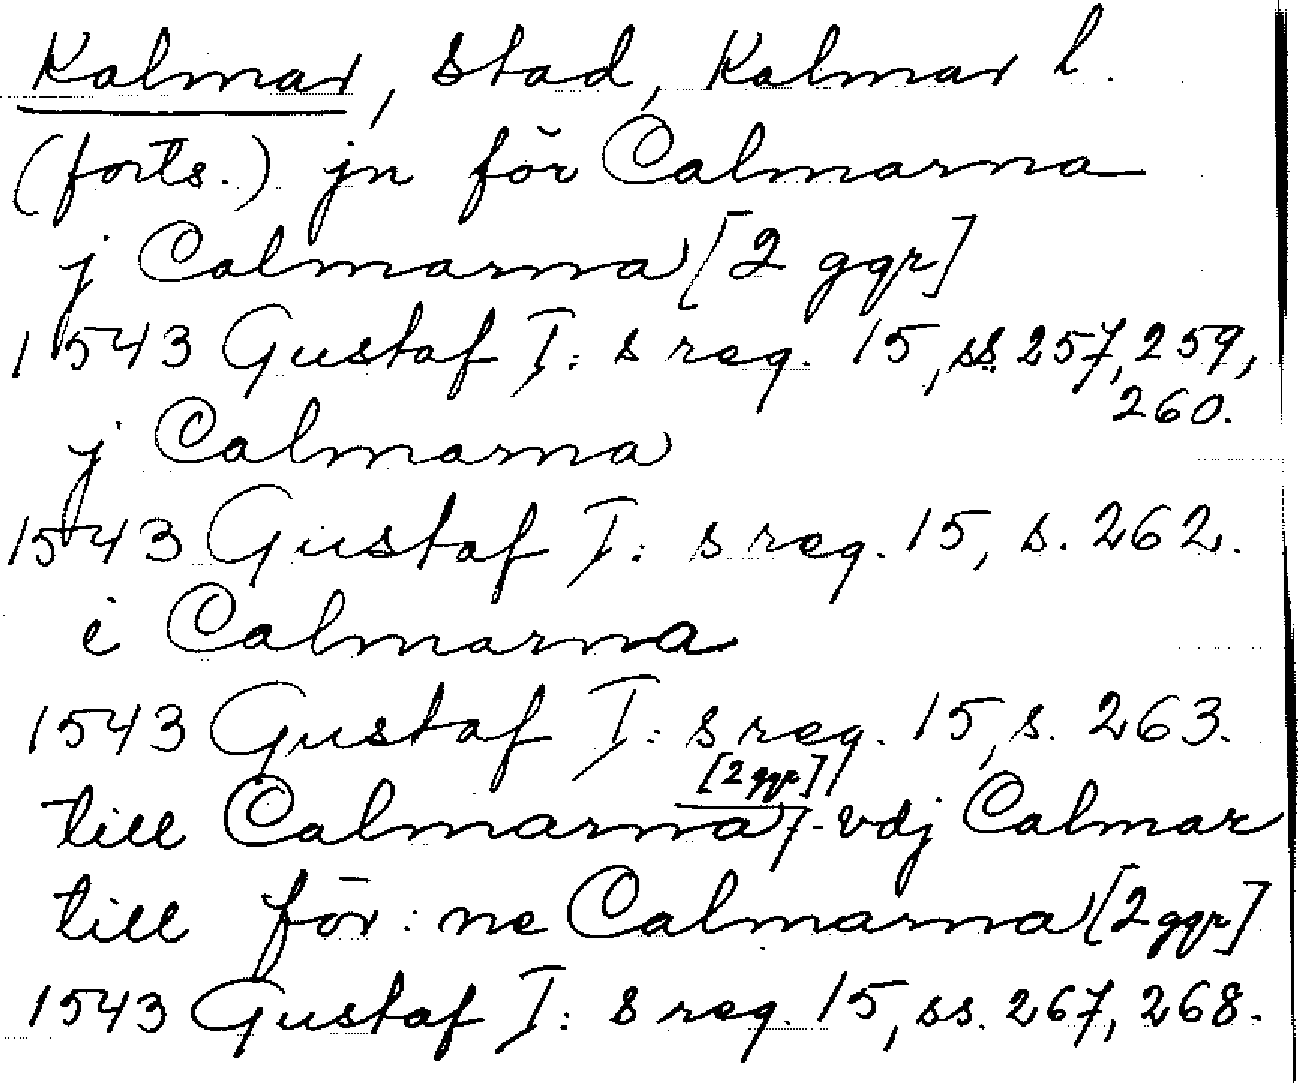 Kalmar, stad, Kalmar l.
(forts.) jn för Calmarna
j Calmarna [2 ggr]
1543 Gustaf I: s reg. 15, ss. 257, 259,
260.
j Calmarna
1543 Gustaf I: s reg. 15, s. 262.
i Calmarna
1543 Gustaf I: s reg. 15, s. 263.
[2 ggr]
till Calmarna, - vdj Calmar
till för: ne Calmarna [2 ggr]
1543 Gustaf I: s reg. 15, ss. 267, 268.